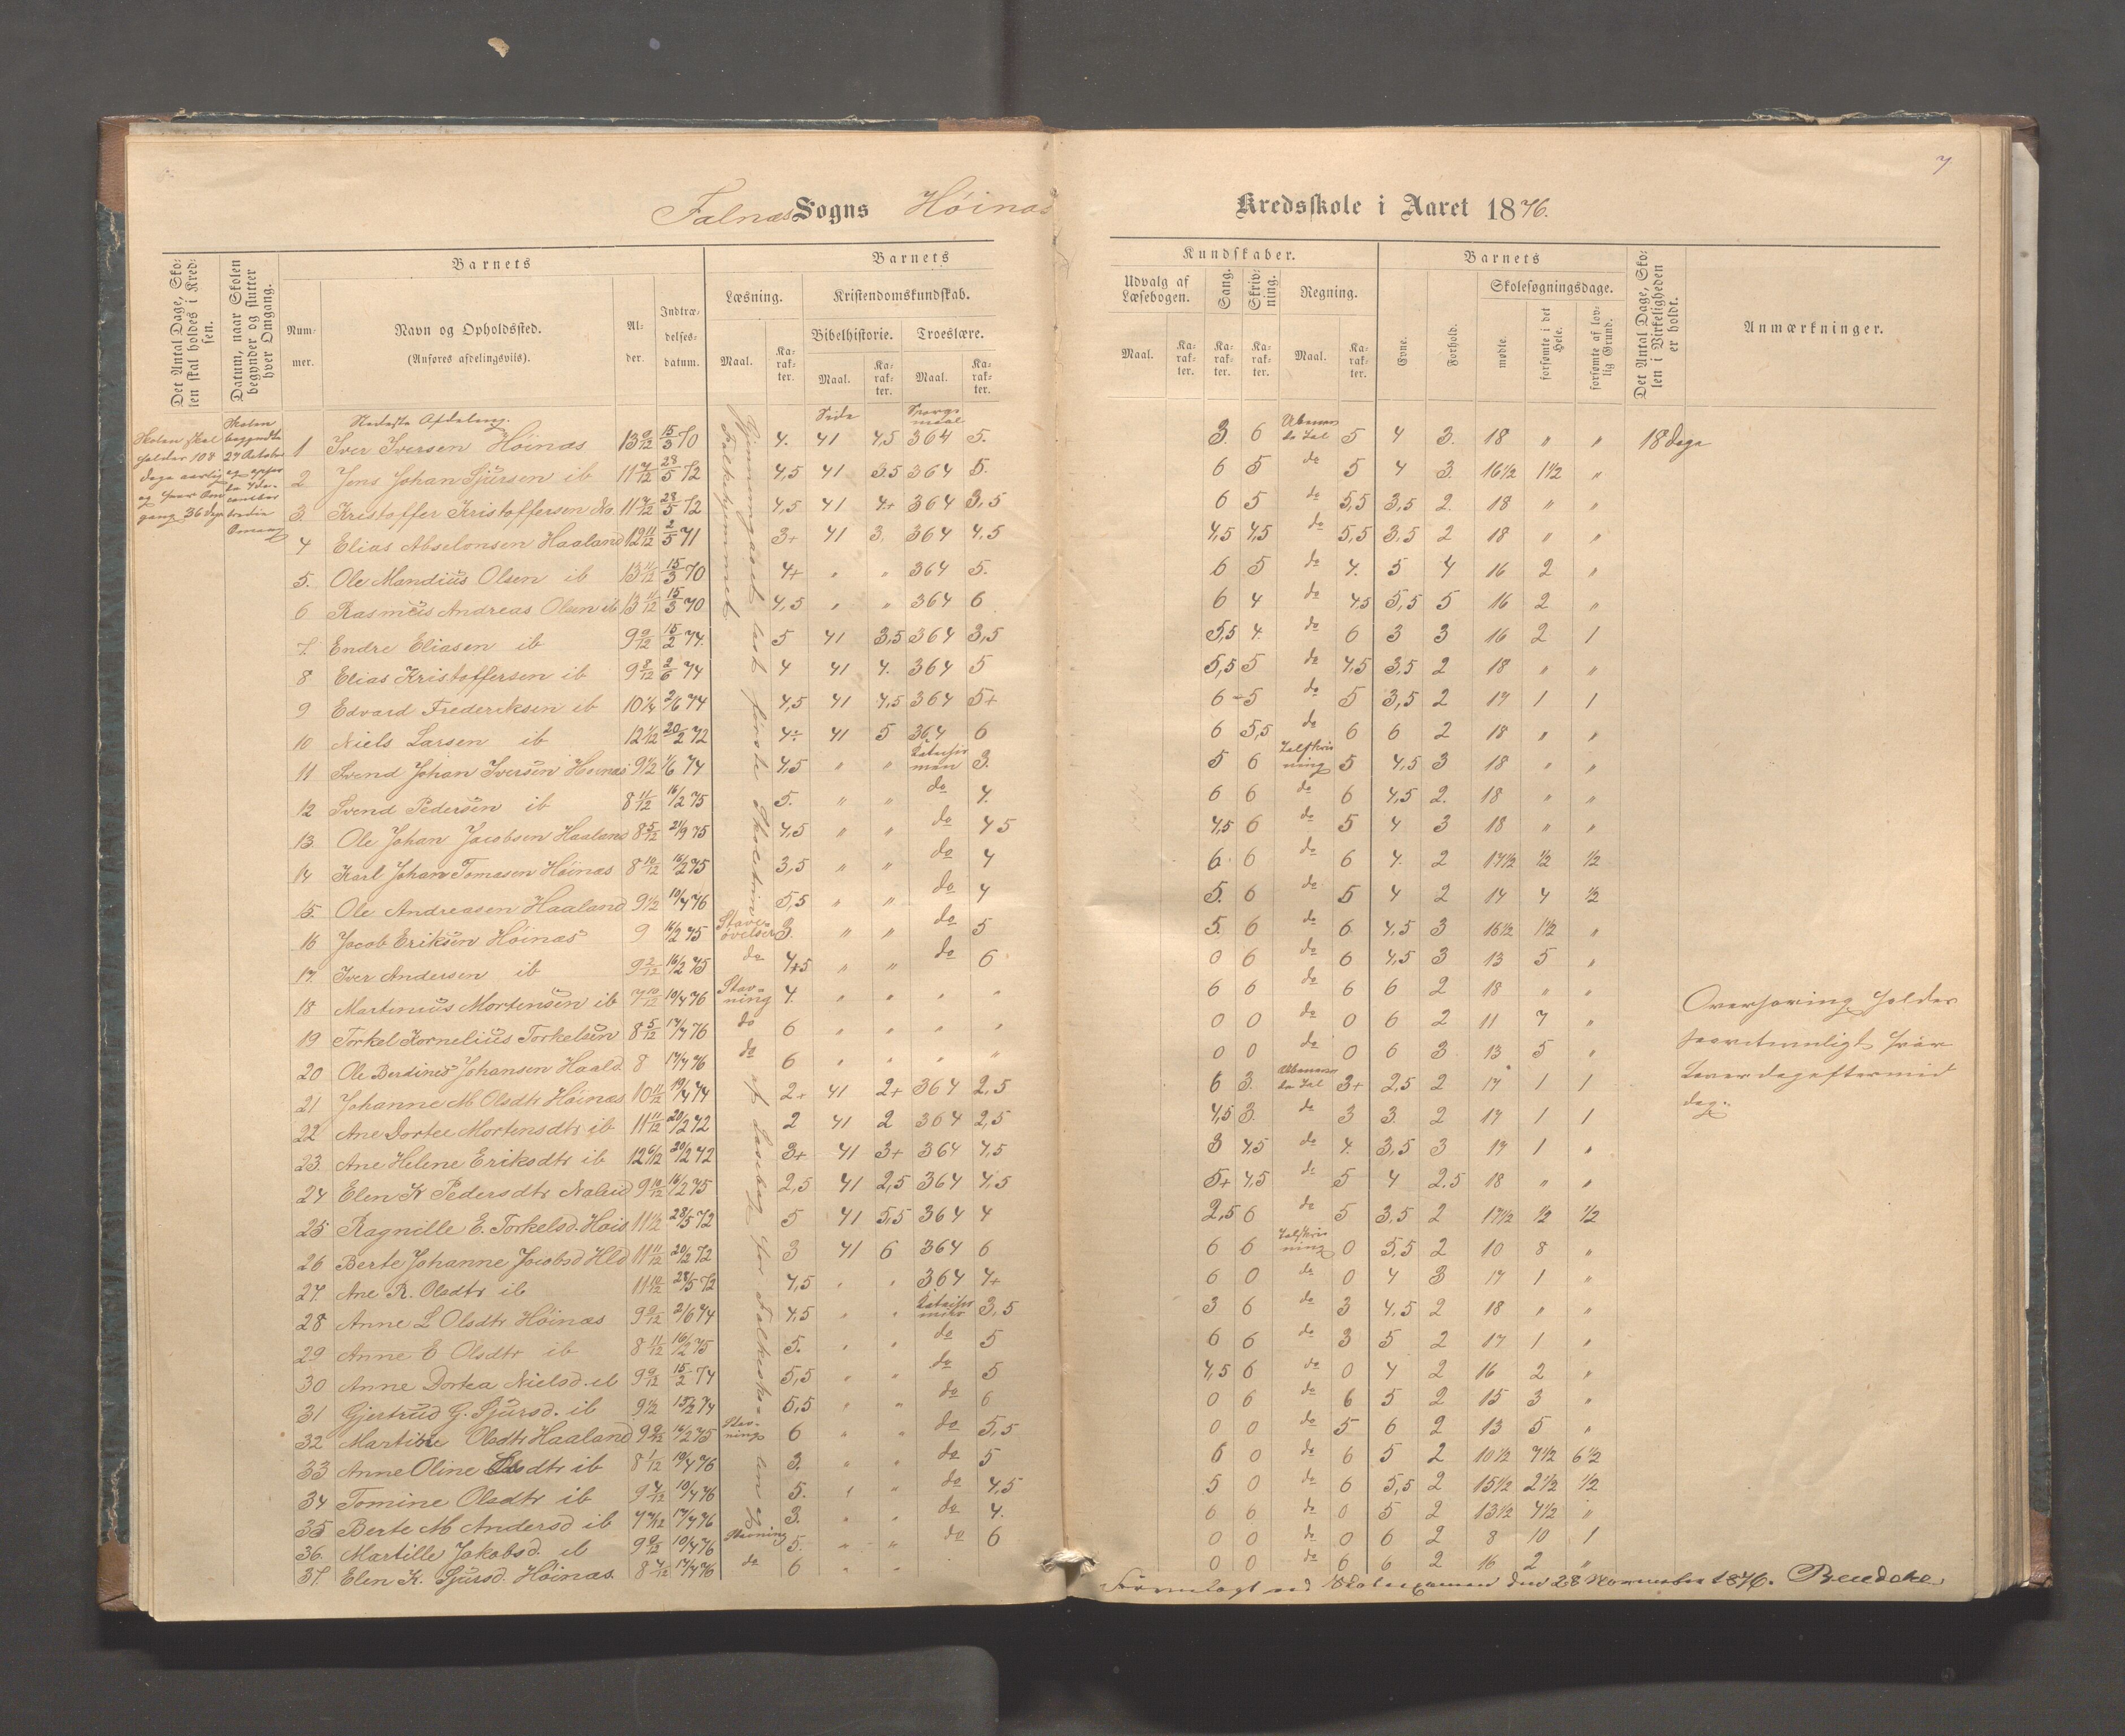 7
Falnæs Sogns Høinæs Kredsskole i Aaret 1876.
Det Antal Dage, Skolen skal holdes i Kredsen.
Datum, naar Skolen begynder og slutter hver Omgang.
Barnets
Nummer.
Navn og Opholdssted.
(Anføres afdelingsviis).
Alder.
Indtrædelsesdatum.
Barnets
Læsning.
Maal.
Karakter.
Kristendomskundskab.
Bibelhistorie.
Maal.
Karakter.
Troeslære.
Maal.
Karakter.
Kundskaber.
Udvalg af Læsebogen.
Maal.
Karakter.
Sang.
Karakter.
Skrivning.
Karakter.
Regning.
Maal.
Karakter.
Barnets
Evne.
Forhold.
Skolesøgningsdage.
mødte.
forsømte i det Hele.
forsømte af lovlig Grund.
Det Antal Dage, Skolen i Virkeligheden er holdt.
Anmærkninger.
Skolen skal holdes 108 dage aarlig og hver Omgang 36 dage
Skolen begyndte 27 October
Nedeste Afdeling.
Side
Spørgsmaal
1 Iver Iversen Høinæs 13 9/12 15/3 70 4. 41 4,5 364 5. 3. 6 5 4 3. 18 " " 18 dage
2 Jens Johan Sjursen ib 11 7/12 28/5 72 4,5 41 3.5 364 5. 6 5 do 5 4 3. 16 1/2 1 1/2 "
3. Kristoffer Kristoffersen 11 28/5 72 4,5 41 4+ 364 3,5 6 5 do 5,5 3,5 2. 18 " "
4 Elias Abselonsen Haaland 12 11/12 2/5 71 3+ 41 3. 364 4.5 4,5 4,5 do 5,5 3,5 2 18 " "
5. Ole Mandius Olsen ib 13 11/12 15/3 70 4+ " " 364 5. 6 5 do 4. 5 4 16 2 "
6 Rasmus Andreas Olsen ib 13 11/12 15/3 70 4,5 " " 364 6 6 4 do 4,5 5,5 5 16 2 "
7. Endre Eliasen ib 9 9/12 15/2 74. 5 41 3,5 364 3,5 5,5 4. do 6 3 3 16 2 1
8 Elias Kristoffersen ib 9 8/12 2/6 74 4 41 4. 364 5 5,5 5 do 4,5 3,5 2 18 " "
9 Edvard Frederiksen ib 10 1/4 2/6 74 4,5 41 4,5 364 5+ 6 5 do 5 3,5 2 17 1 1
10 Niels Larsen ib 12 1/2 20/2 72 4÷ 41 5 364 6 6 5,5 do 6 6 2 18 " "
11 Svend Johan Iversen Høinæs 9 1/2 74 4,5 " " 3. 5 6 Talskrivning 5 4,5 3 18 " "
12 Svend Pedersen ib 8 11/12 16/2 75 5. " " do 4. 6 6 do 6 4,5 2. 18 " "
13. Ole Johan Jacobsen Haaland 8 5/12 21/9 75 4,5 " " do 4 5 4,5 6 do 5 4 3 18 " "
14 Karl Johan Tomasen Høinæs 8 10/12 16/2 75 3,5 " " do 4 6 6 do 6 4. 2 17 1/2 1/2 1/2
15. Ole Andreasen Haaland 9 1/2 10/4 76 5,5 " " do 4 5. 6 do 5 4 2 14 4 1/2
16 Jacob Eriksen Høinæs 9 16/2 75 Staveøvelser 3. " " do 5 5. 6 do 6. 4,5 3 16 1/2 1 1/2 "
17. Iver Andersen ib 9 2/12 16/2 75 do 4+5 " " do 6 0 6 do 6 4,5 3 13 5 "
18 Martinius Mortensen ib 7 10/12 10/4 76 Stavning 4. " " " " 6 6 do 6 6 2 18 " "
19 Torkel Kornelius Torkelsen 8 5/12 17/4 76 do 6 " " " " 0 0 do 0 6 2 11 7 "
20 Ole Berdines Johansen Haald 8 17/4 76 do 6 " " " " 0 0 do 0 6 3 13 5 "
21 Johanne M Olsdtr Høinæs 10 11/12 19/4 74 2+ 41 2+ 364 2,5 6 3. 3+ 2,5 2 17 1 1
22 Ane Dortee Mortensdtr ib 11 11/12 20/2 72 2 41 2 364 2,5 4,5 3. do 3 3. 2 17 1 1
23. Ane Helene Eriksdtr ib 12 6/12 20/2 72 3+ 41 3+ 364 4,5 3 4,5 do 4. 3,5 3 17 1 "
24 Elen K Pedersdtr 9 10/12 16/2 75 2,5 41 2,5 364 4,5 5+ 4,5 do 5 4 2.5 18 " "
25 Ragnille E. Torkelsd. Høis 11 1/2 28/5 72 5 41 5,5 364 4 2,5 6 do 5 3,5 2 17 1/2 1/2 1/2
26 Berte Johanne Jacobsd Hld 11 11/12 20/2 72 3 41 6 364 6 6 6 Talskrivning 0 5,5 2 10 8 "
27. Ane R. Olsdtr ib 11 10/12 28/5 72 4,5 " " 364 4+ 6 0 do 0 4 3 17 1 "
28 Anne L Olsdtr Høinæs 9 9/12 2/6 74 4,5 " " 3,5 3 6 do 3 4,5 2 18 " "
29 Anne E Olsdtr ib 8 11/12 16/2 75 5. " " do 5 6 6 do 3 5 2 17 1 "
30 Anne Dortea Nielsd. ib 9 9/12 15/2 74 5,5 " " do 5 4,5 6 do 0 4 2 16 2 "
31 Gjertrud G. Sjursd. ib 9 1/2 15/2 74 5,5 " " do 6 0 6 do 6 5 2 15 3 "
32 Martine Olsdtr Haaland 9 9/12 16/2 75 Stavning 6 " " do 5,5 0 0 do 5 6 2 13 5 "
33 Anne Oline Olsdtr ib 8 1/12 19/4 76 3. " " do 5 6 0 do 6 5 2 10 1/2 7 1/2 6 1/2
34 Tomine Olsdtr ib 9 4/12 10/4 76 5. " " do 4,5 5 0 do 6 5,5 2 15 1/2 2 1/2 1/2
35 Berte M Andersd ib 7 17/4 76 3. " " do 4. 6 6 do 0 5 2 13 1/2 4 1/2 "
36. Martille Jakobsd. ib 9 9/12 10/4 76 Stavning 5. " " do 6 0 0 do 0 6 2 8 10 1
37. Elen K. Sjursd. Høinæs. 8 17/4 76 do 6 " " 0 0 do 6 6 2 16 2 "
Overhøring holdes
hver
Løverdageftermid
dag.
Fremlagt ved Skoleexamen den 28 November 1876.